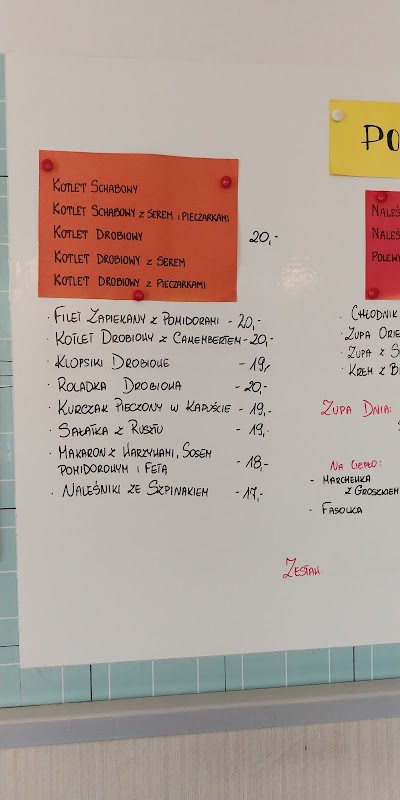 KOTLET SCHABOWY
KOTLET SCHABOWY Z SEREM I PIECZARKAMI
KOTLET DROBIOWY 20,-
KOTLET DROBIOWY Z SEREM
KOTLET DROBIOWY Z PIECZARKAMI
· FILET ZAPIEKANY Z POMIDORAMI - 20,-
· KOTLET DROBIOWY Z CAMEMBERTEM - 20,-
· KLOPSIKI DROBIOWE - 19,-
· ROLADKA DROBIOWA - 20,-
· KURCZAK PIECZONY W KAPUŚCIE - 19,-
· SAŁATKA Z RUSZTU - 19,-
· MAKARON Z WARZYWAMI, SOSEM
POMIDOROWYM I FETĄ - 18,-
· NALEŚNIKI ZE SZPINAKIEM - 17,-
PO
NALEŚ
NALEŚ
POLEW
· CHŁODNIK
· ZUPA ORIE
· ZUPA Z S
· KREM Z B
ZUPA DNIA:
NA CIEPŁO:
- MARCHEWKA
Z GROSZKIEM
- FASOLKA
ZESTAW